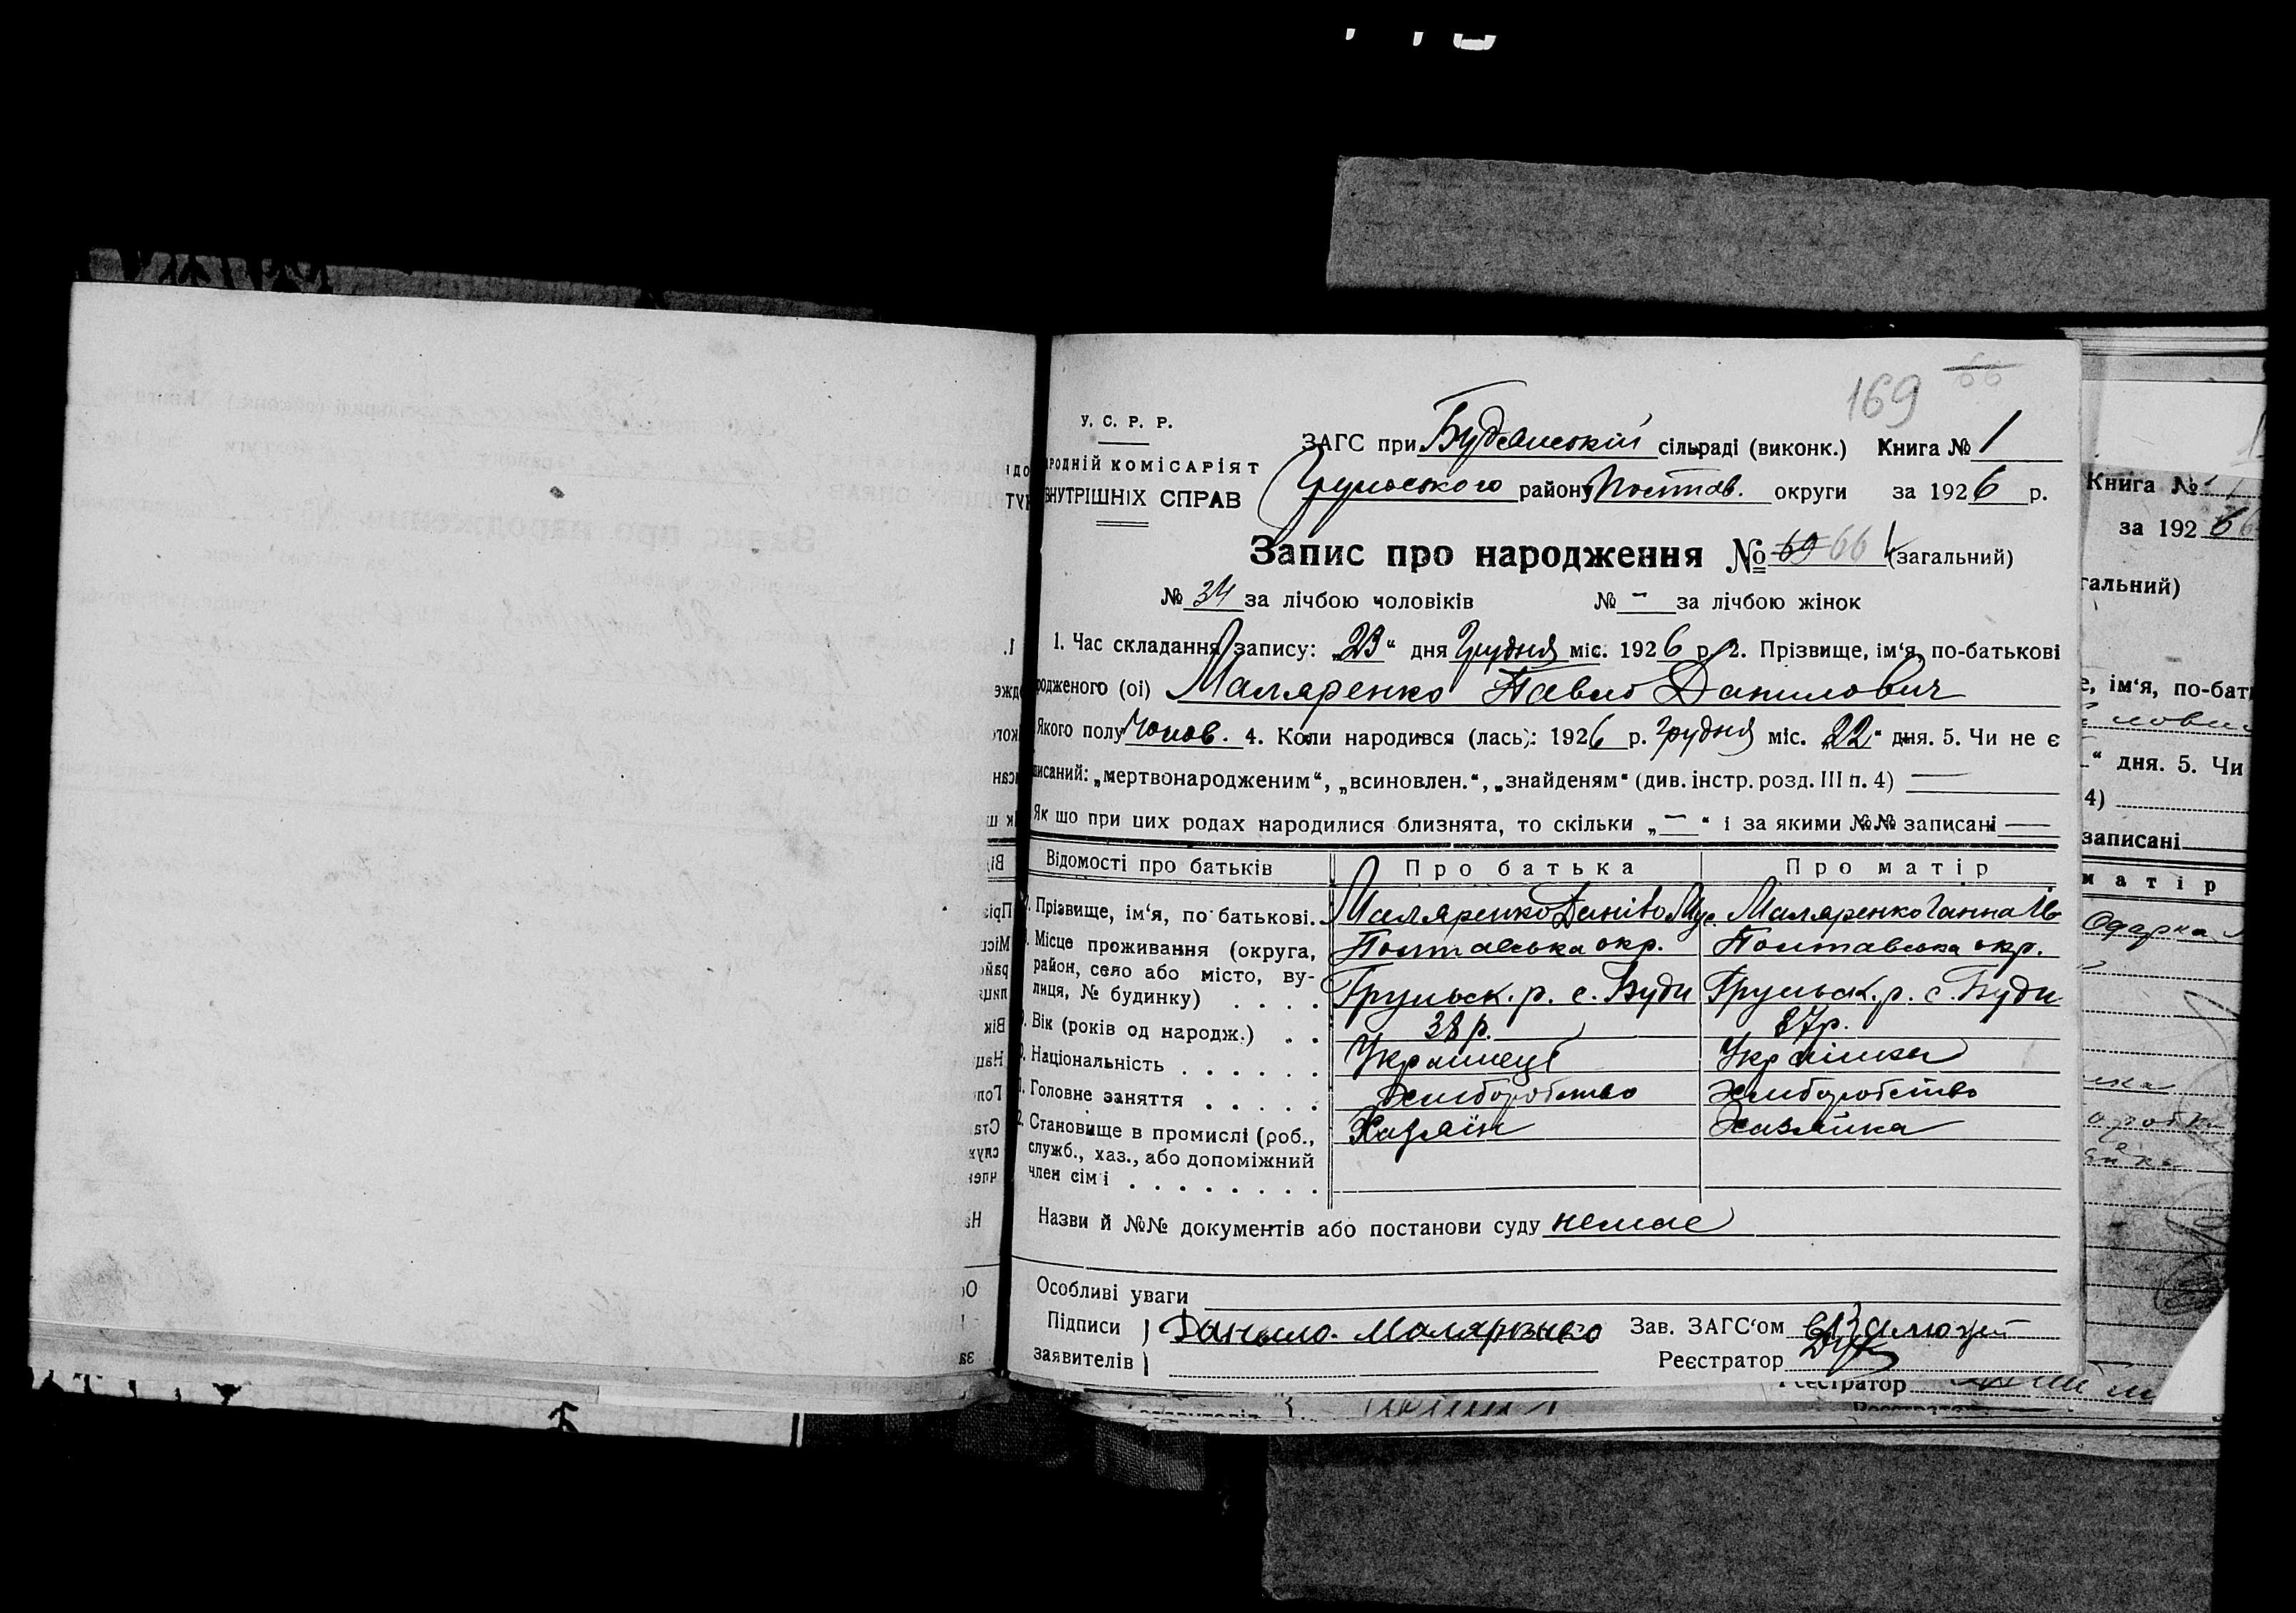 169 66
У. С. Р. Р.
ЗАГС при Будянській сільраді (виконк.) Книга № 1
РОДНІЙ КОМІСАРІЯТ
Грунського району Полтав. округи за 1926 р.
ВНУТРІШНІХ СПРАВ
Запис про народження № 69 66 (загальний)
№ 34 за лічбою чоловіків № – за лічбою жінок
1. Час складання запису: „23“ дня Грудня міс. 1926 р. 2. Прізвище, ім‘я, по-батькові
родженого (ої) Маляренко Павло Данилович
Якого полу Чолов. 4. Коли народився (лась): 1926 р. Грудня міс. „22“ дня. 5. Чи не є
писаний: „мертвонародженим“, „всиновлен.“, „знайденям“ (див. інстр. розд. III п. 4) —
Як що при цих родах народилися близнята, то скільки „—“ і за якими №№ записані —
Відомості про батьків Про батька Про матір
Прізвище, ім‘я, по батькові. Маляренко Данило Маляренко Ганна Ів
Місце проживання (округа, Полтавська окр. Полтавська окр.
район, село або місто, ву-
лиця, № будинку) . . . . Грунськ. р. с. Буди Грунськ. р. с. Буди
Вік (років од народж.) . . 38 р. 37 р.
Національність . . . . . . Українець Українка
1. Головне заняття . . . . . Хліборобство Хліборобство
2. Становище в промислі (роб., Хазяїн Хазяйка
служб., хаз., або допоміжний
член сім‘ї . . . . . . . .
Назви й №№ документів або постанови суду немає
Особливі уваги
Підписи } Данило Маляренко Зав. ЗАГС‘ом
заявителів } Реєстратор
Реєстратор
Книга № 1
за 1926
гальний)
е, ім‘я, по-бат
“ дня. 5. Чи
4)
записані
матір
Одарка